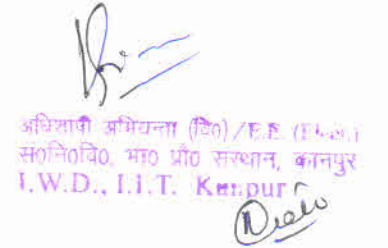 अधिशाषी अभियन्ता (वि0)/E.E. (Elect.)
स0नि0वि0, भा0 प्रौ0 संस्थान, कानपुर
I.W.D., I.I.T. Kanpur